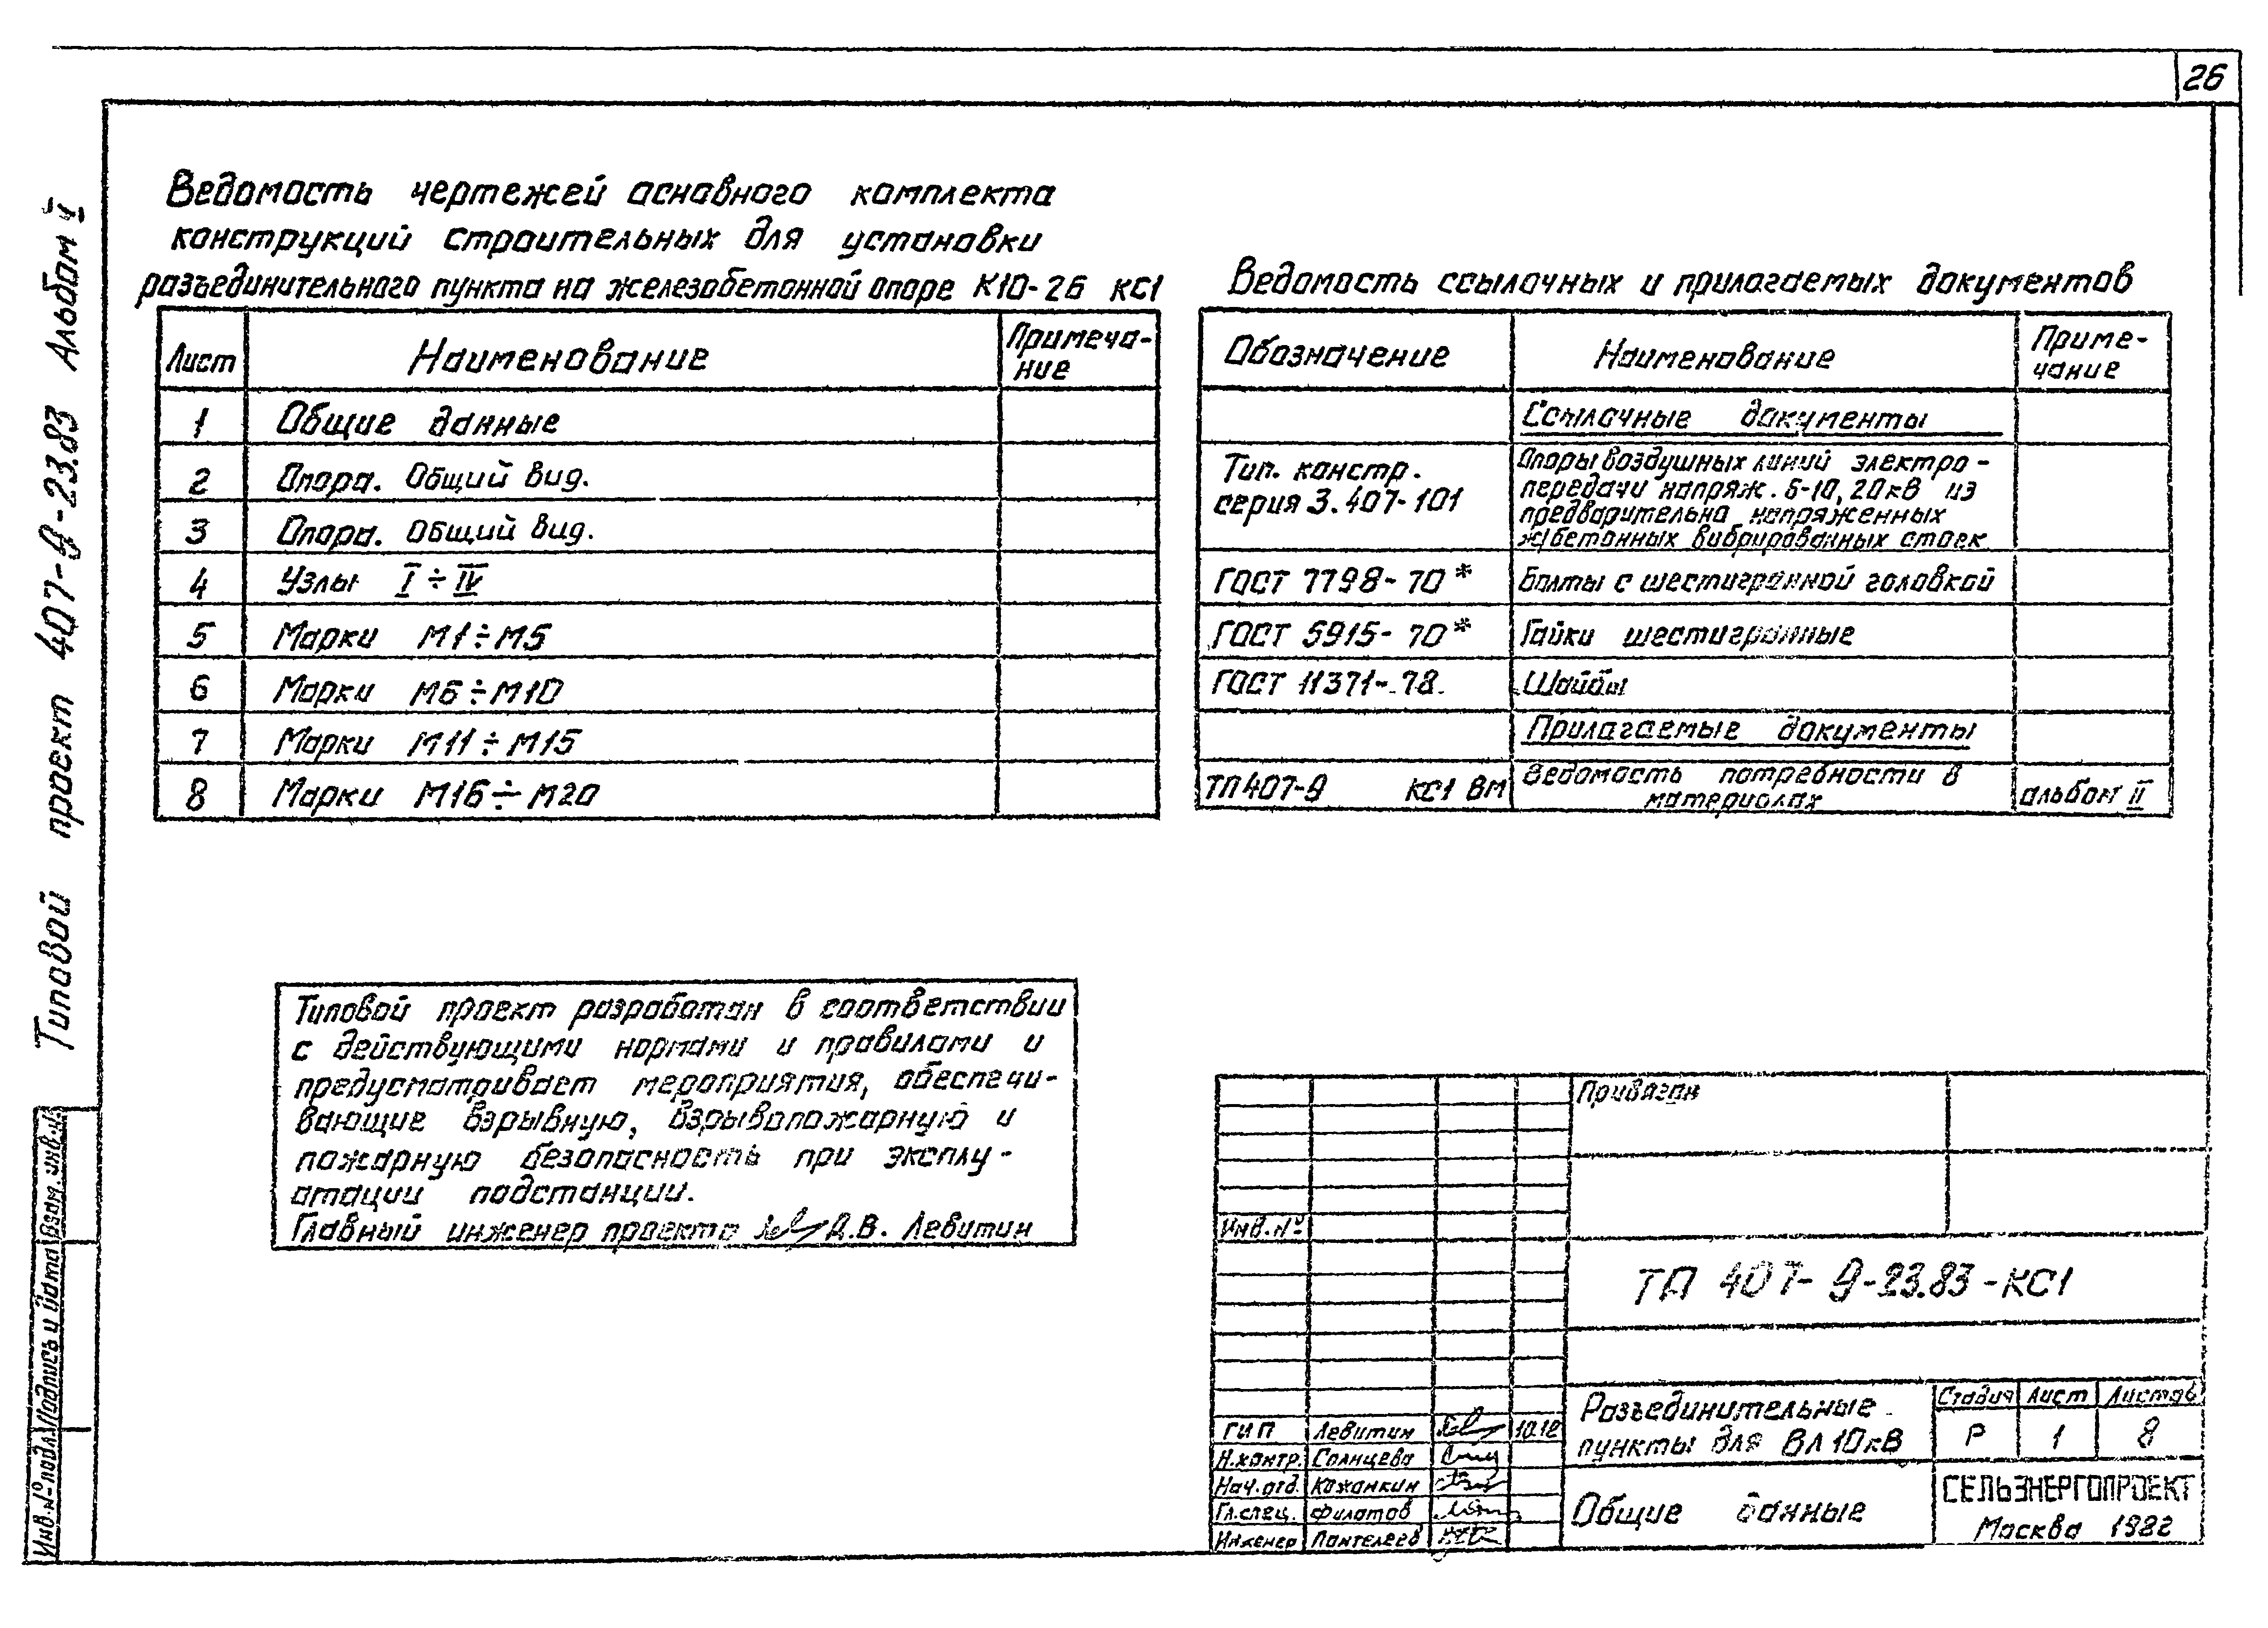 26
Типовой проект 407-9-23.83 Альбом V
Ведомость чертежей основного комплекта
конструкций строительных для установки
разъединительного пункта на железобетонной опоре К10-26 КС1
Лист Наименование Примеча-
ние
1 Общие данные
2 Опора. Общий вид.
3 Опора. Общий вид.
4 Узлы I ÷ IV
5 Марки М1÷М5
6 Марки М6÷М10
7 Марки М11÷М15
8 Марки М16÷М20
Ведомость ссылочных и прилагаемых документов
Обозначение Наименование Приме-
чание
Ссылочные документы
Тип. констр.
серия 3.407-101
Опоры воздушных линий электро-
передачи напряж. 6-10, 20кв из
предварительно напряженных
ж/бетонных вибрированных стоек
ГОСТ 7798-70* Болты с шестигранной головкой
ГОСТ 5915-70* Гайки шестигранные
ГОСТ 11371-78. Шайбы
Прилагаемые документы
ТП407-9 КС1 ВМ Ведомость потребности в
материалах
альбом II
Типовой проект разработан в соответствии
с действующими нормами и правилами и
предусматривает мероприятия, обеспечи-
вающие взрывную, взрывопожарную и
пожарную безопасность при эксплу-
атации подстанции.
Главный инженер проекта Д.В. Левитин
Привязан
Инв.№
ТП 407-9-23.83-КС1
Разъединительные
пункты для ВЛ10кВ
Стадия Лист Листов
Р 1 8
Общие данные
СЕЛЬЭНЕРГОПРОЕКТ
Москва 1982
ГИП Левитин
Н.контр. Солнцева
Нач.отд. Кажанкин
Гл.спец. Филатов
Инженер Пантелеев
Инв.№подл. Подпись и дата Взам.инв.№